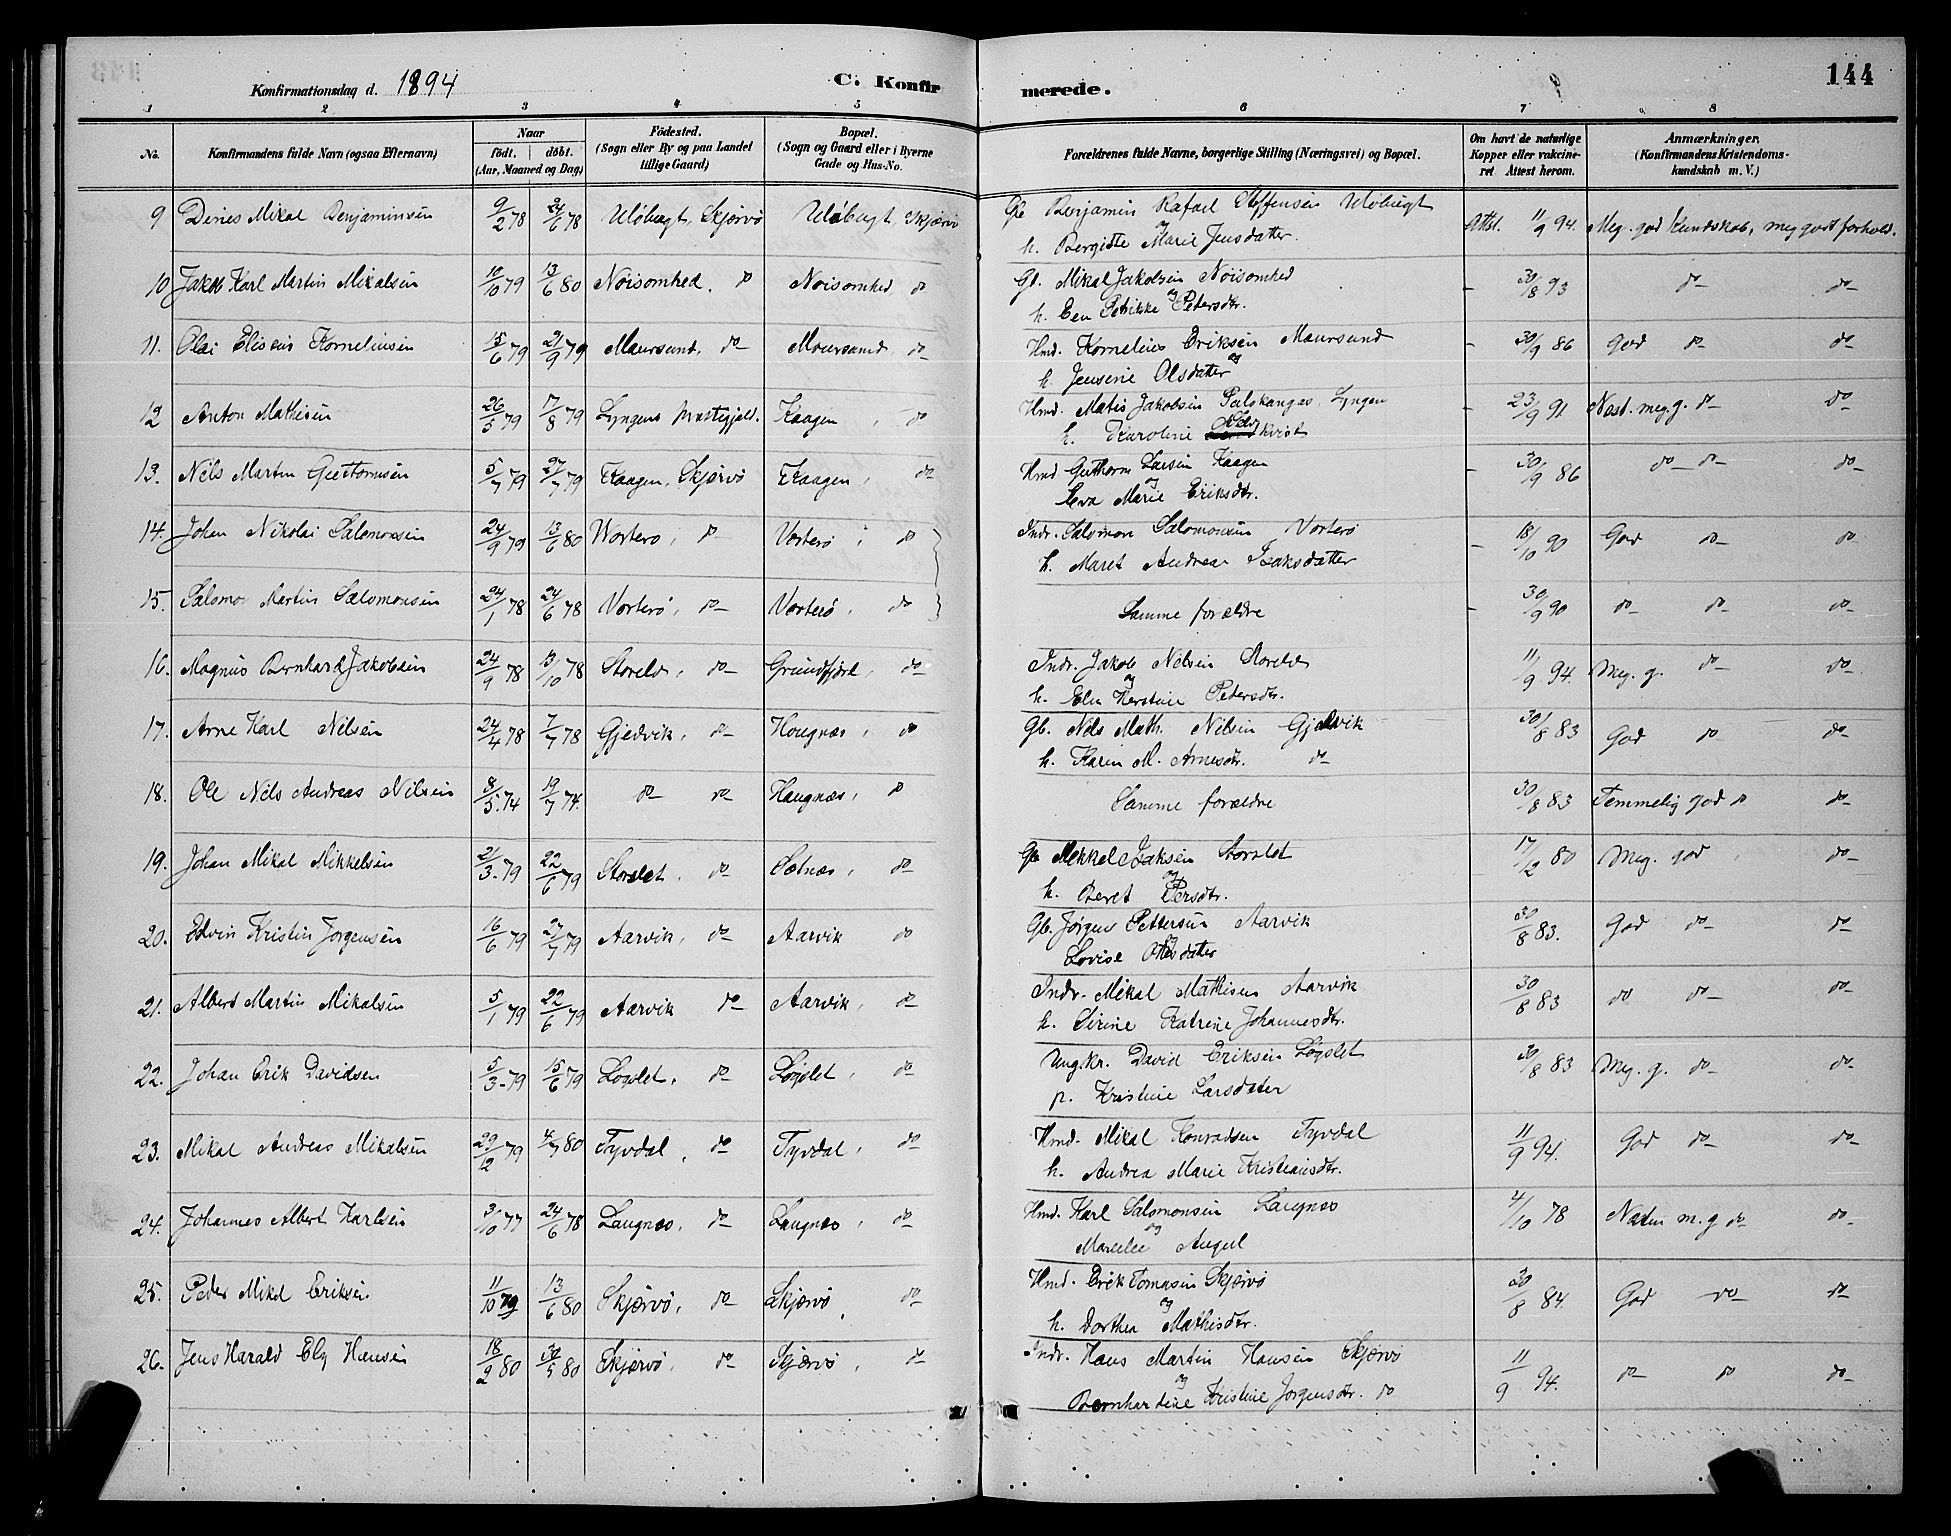 Konfirmationsdag d. 1894 C. Konfirmerede. 144
1 2 3 4 5 6 7 8
No. Konfirmandens fulde Navn (ogsaa Efternavn) Naar født. døbt. (Aar, Maaned og Dag) Fødested. (Sogn eller By og paa Landet tillige Gaard) Bopæl. (Sogn og Gaard eller i Byerne Gade og Hus-No. Forældrenes fulde Navne, borgerlige Stilling (Næringsvei) og Bopæl. Om havt de naturlige Kopper eller vakcineret Attest herom. Anmærkninger. (Konfirmandens Kristendomskundskab m. V.)
9 Denes Mikal Benjaminsen 9/2 78 24/6 78 Uløbugt, Skjærvø Uløbugt, Skjærvø Gb Benjamin Rafael Steffensen Uløbugt Attst. 11/9 94. Meg. god Kundskab, meg godt forhold.
og
h. Bergitte Marie Jensdatter.
10 Jakob Karl Martin Mikalsen 10/10 79 13/6 80 Nøisomhed, do Nøisomhed do Gb. Mikal Jakobsen Nøisomhed - 30/8 93 do- do-
og
h. Een Petrikke Petersdtr.
11. Olai Eliseus Kornelinsen 15/6 79 21/9 79 Maursund, do- Maursund do- Hmd. Kornelius Eriksen Maursund - 30/9 86 God do- do-
og
h. Jensine Olsdatter
12 Anton Mathisen 26/5 79 17/8 79 Lyngens Prestegjeld. Kaagen, do Hmd. Matis Jakobsen Palskangas, Lyngen - 23/9 91 Nast. meg. g. do- do-
h. Karoline kvist
13. Nils Martin Guttormsen 5/7 79 27/7 79 Kaagen, Skjærvø Kaagen, do- Hmd Guthorm Larsen Kaagen - 30/9 86 do- do- do-
og
Leva Marie Eriksdtr.
14. Johan Nikolai Salomonsen 24/9 79 13/6 80 Vorterø, do Vorterø, do Indr. Salomon Salomonsen Vorterø - 18/10 90 God do- do-
h. Maret Andrea Isaksdatter
15. Salomon Martin Salomonsen 24/1 78 24/6 78 Vorterø, do- Vorterø, do Samme forældre - 30/9 90 do- do- do-
16. Magnus Bernhard Jakobsen 24/9 78 13/10 78 Storelv, do- Grundfjord, do- Indr. Jakob Nilsen Storelv 11/9 94. Meg. g. do- do-
og
h. Elen Kerstine Petersdtr.
17. Arne Karl Nilsen 24/4 78 7/7 78 Gjedvik, do- Haugnæs, do Gb. Nils Math. Nilsen Gjedvik 30/8 83 God do- do-
h. Karen M. Arnesdtr. do-
18. Ole Nils Andreas Nilsen 8/5. 74 19/7 74. do- do- Haugnæs, do Samme forældre 30/8 83 Temmelig god do do-
19. Johan Mikal Mikkelsen 21/3. 79 22/6 79 Storslet, do- Sætnæs, do- Gb Mikkel Isaksen Storslet 17/12 80 Meg. god do-
og
h. Beret Persdtr.
20. Edvin Kristin Jørgensen 16/6 79 27/7 79 Aarvik, do- Aarvik do Gb. Jørgen Pettersen Aarvik 30/8 83. God do- do-
og
Lovise Ottesdatter
21. Albert Martin Mikalsen 5/1 79 22/6 79 Aarvik do- Aarvik, do- Indr. Mikal Mathisen Aarvik 30/8 83 do do- do-
h. Sirine Katrine Johannesdtr.
22. Johan Erik Davidsen 5/3-79 15/6 79 Løgslet, do- Løgslet, do- Ung.kr. David Eriksen Løgslet 30/8 83 Meg. g. do- do-
p. Kristine Larsdatter
23. Mikal Andreas Mikalsen 29/12 79 4/7 80 Tyvdal, do- Tyvdal, do- Hmd. Mikal Konradsen Tyvdal 11/9 94. God do- do-
h. Andrea Marie Kristiansdtr.
24. Johannes Albert Karlsen 3/10 77 24/6 78 Laugnæs, do- Laugnæs, do- Hmd. Karl Salomonsen Laugnæs 4/10 78 Næsten m. g do- do-
og
25. Peder Mikal Eriksen 11/10 79 13/6 80 Skjærvø, do- Skjærvø, do- Hmd. Erik Tomasen Skjærvø 30/8 84. God do- do-
og
h. Dorthea Mathisdtr.
26. Jens Harald Elg Hansen 18/2 80 30/5 80 Skjærvø, do- Skjærvø, do- Indr. Hans Martin Hansen Skjærvø 11/9 94. do- do do-
og
Bernhardine Kristine Jørgensdtr. do